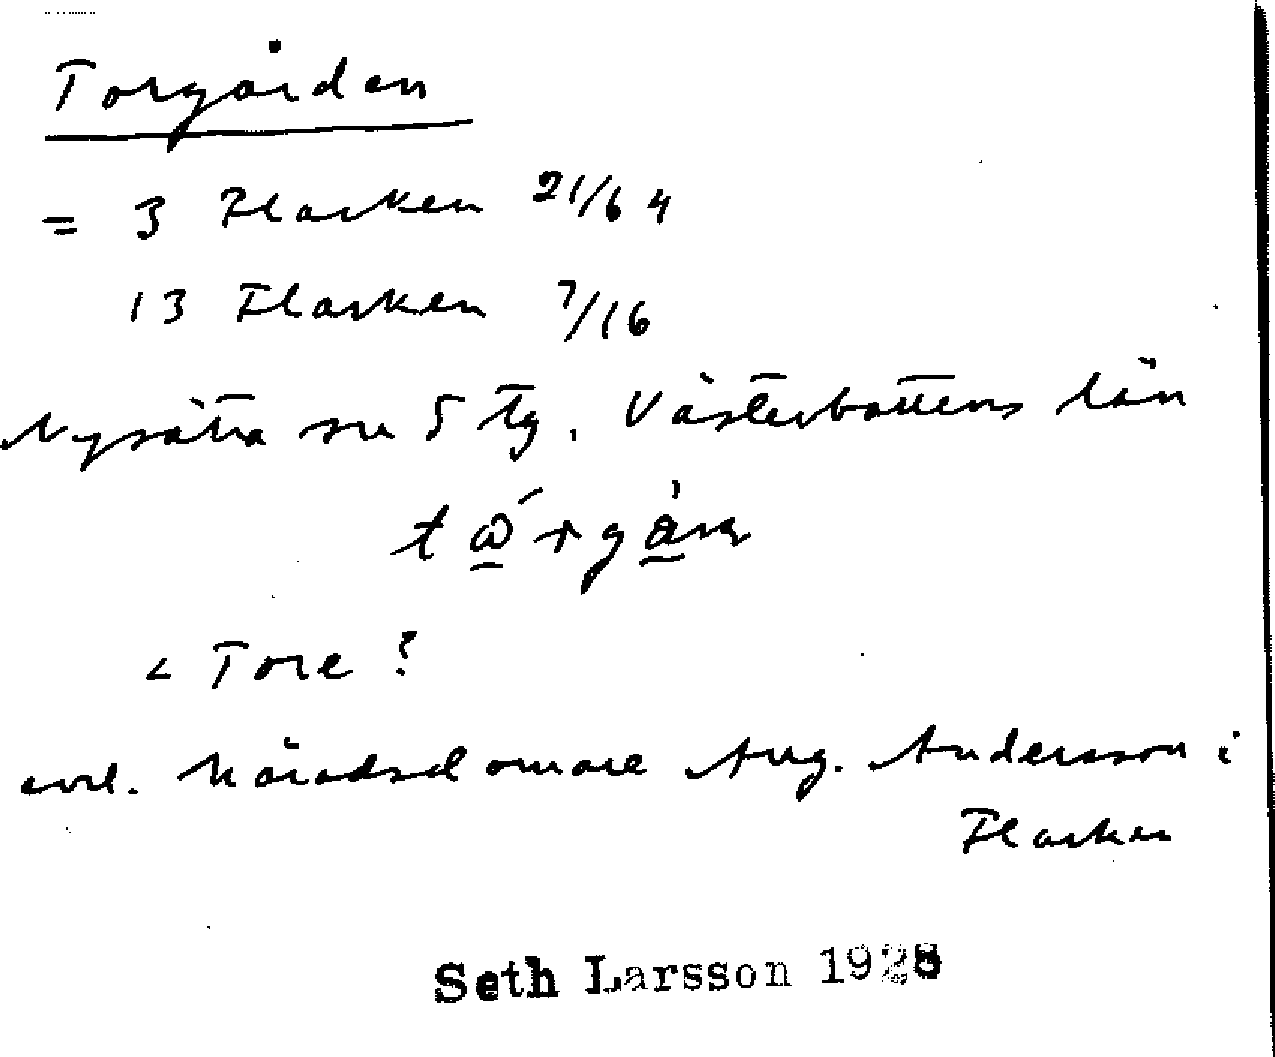 Torgården
= 3 Flarken 21/64
13 Flarken 7/16
Nysätra sn 5 tg. Västerbottens län
< Tore?
enl. Häradsdomare Aug. Andersson i
Flarken
Seth Larsson 1928